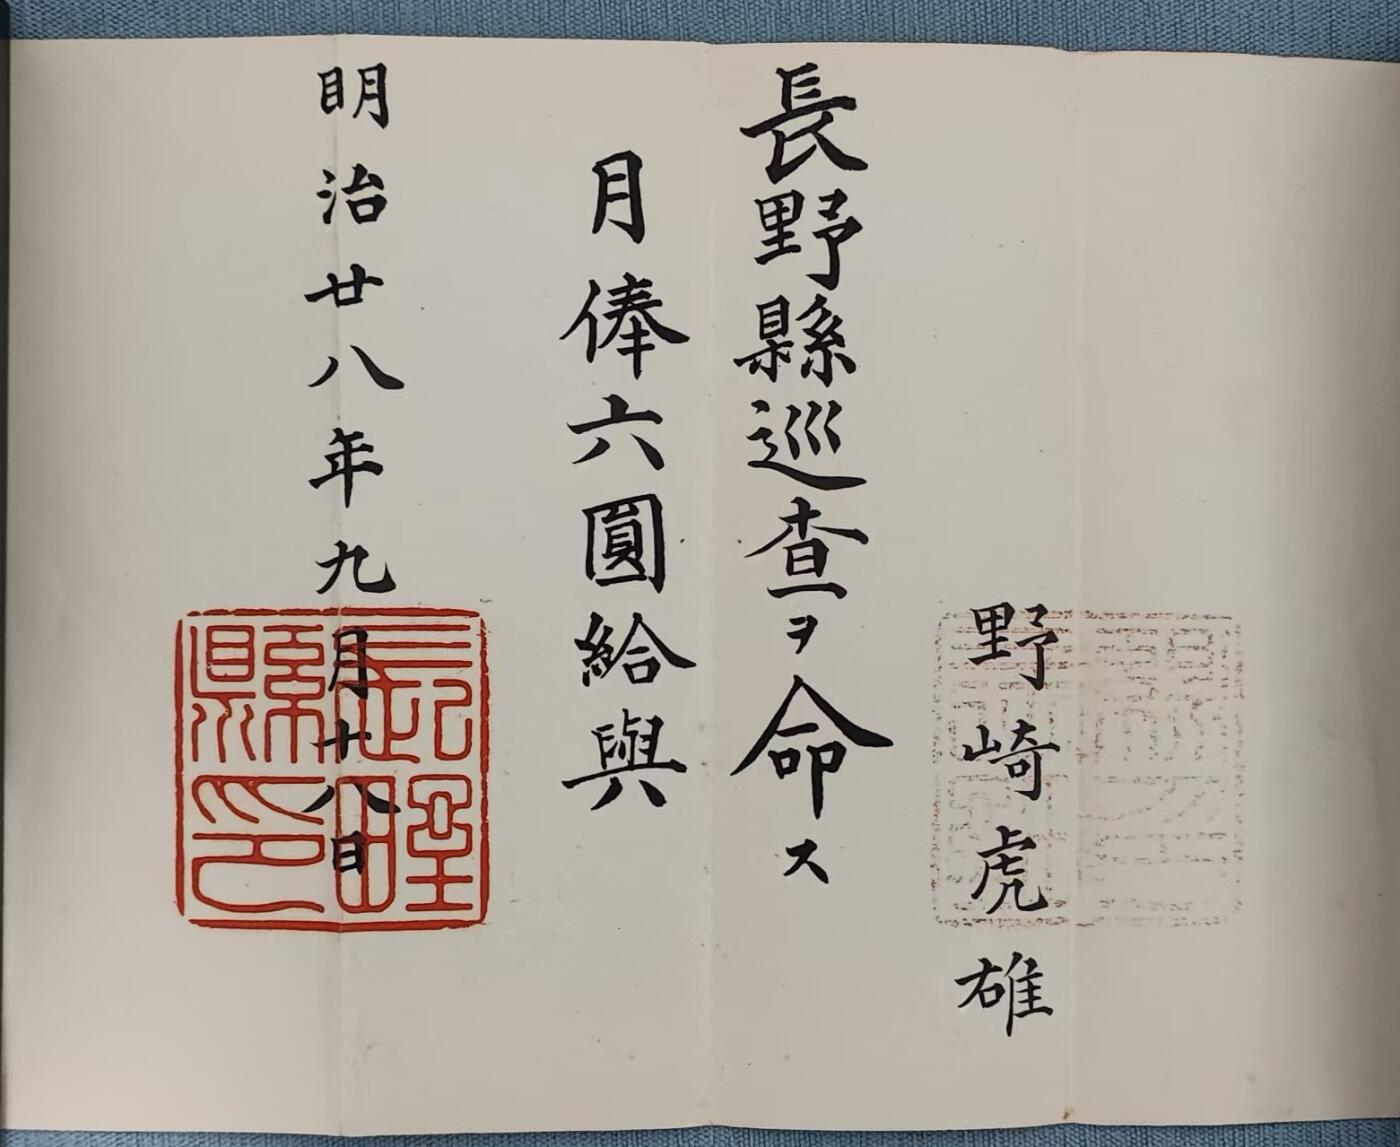 野崎虎雄
長野縣巡査ヲ命ス
月俸六圓給與
明治廿八年九月十八日
長野縣印